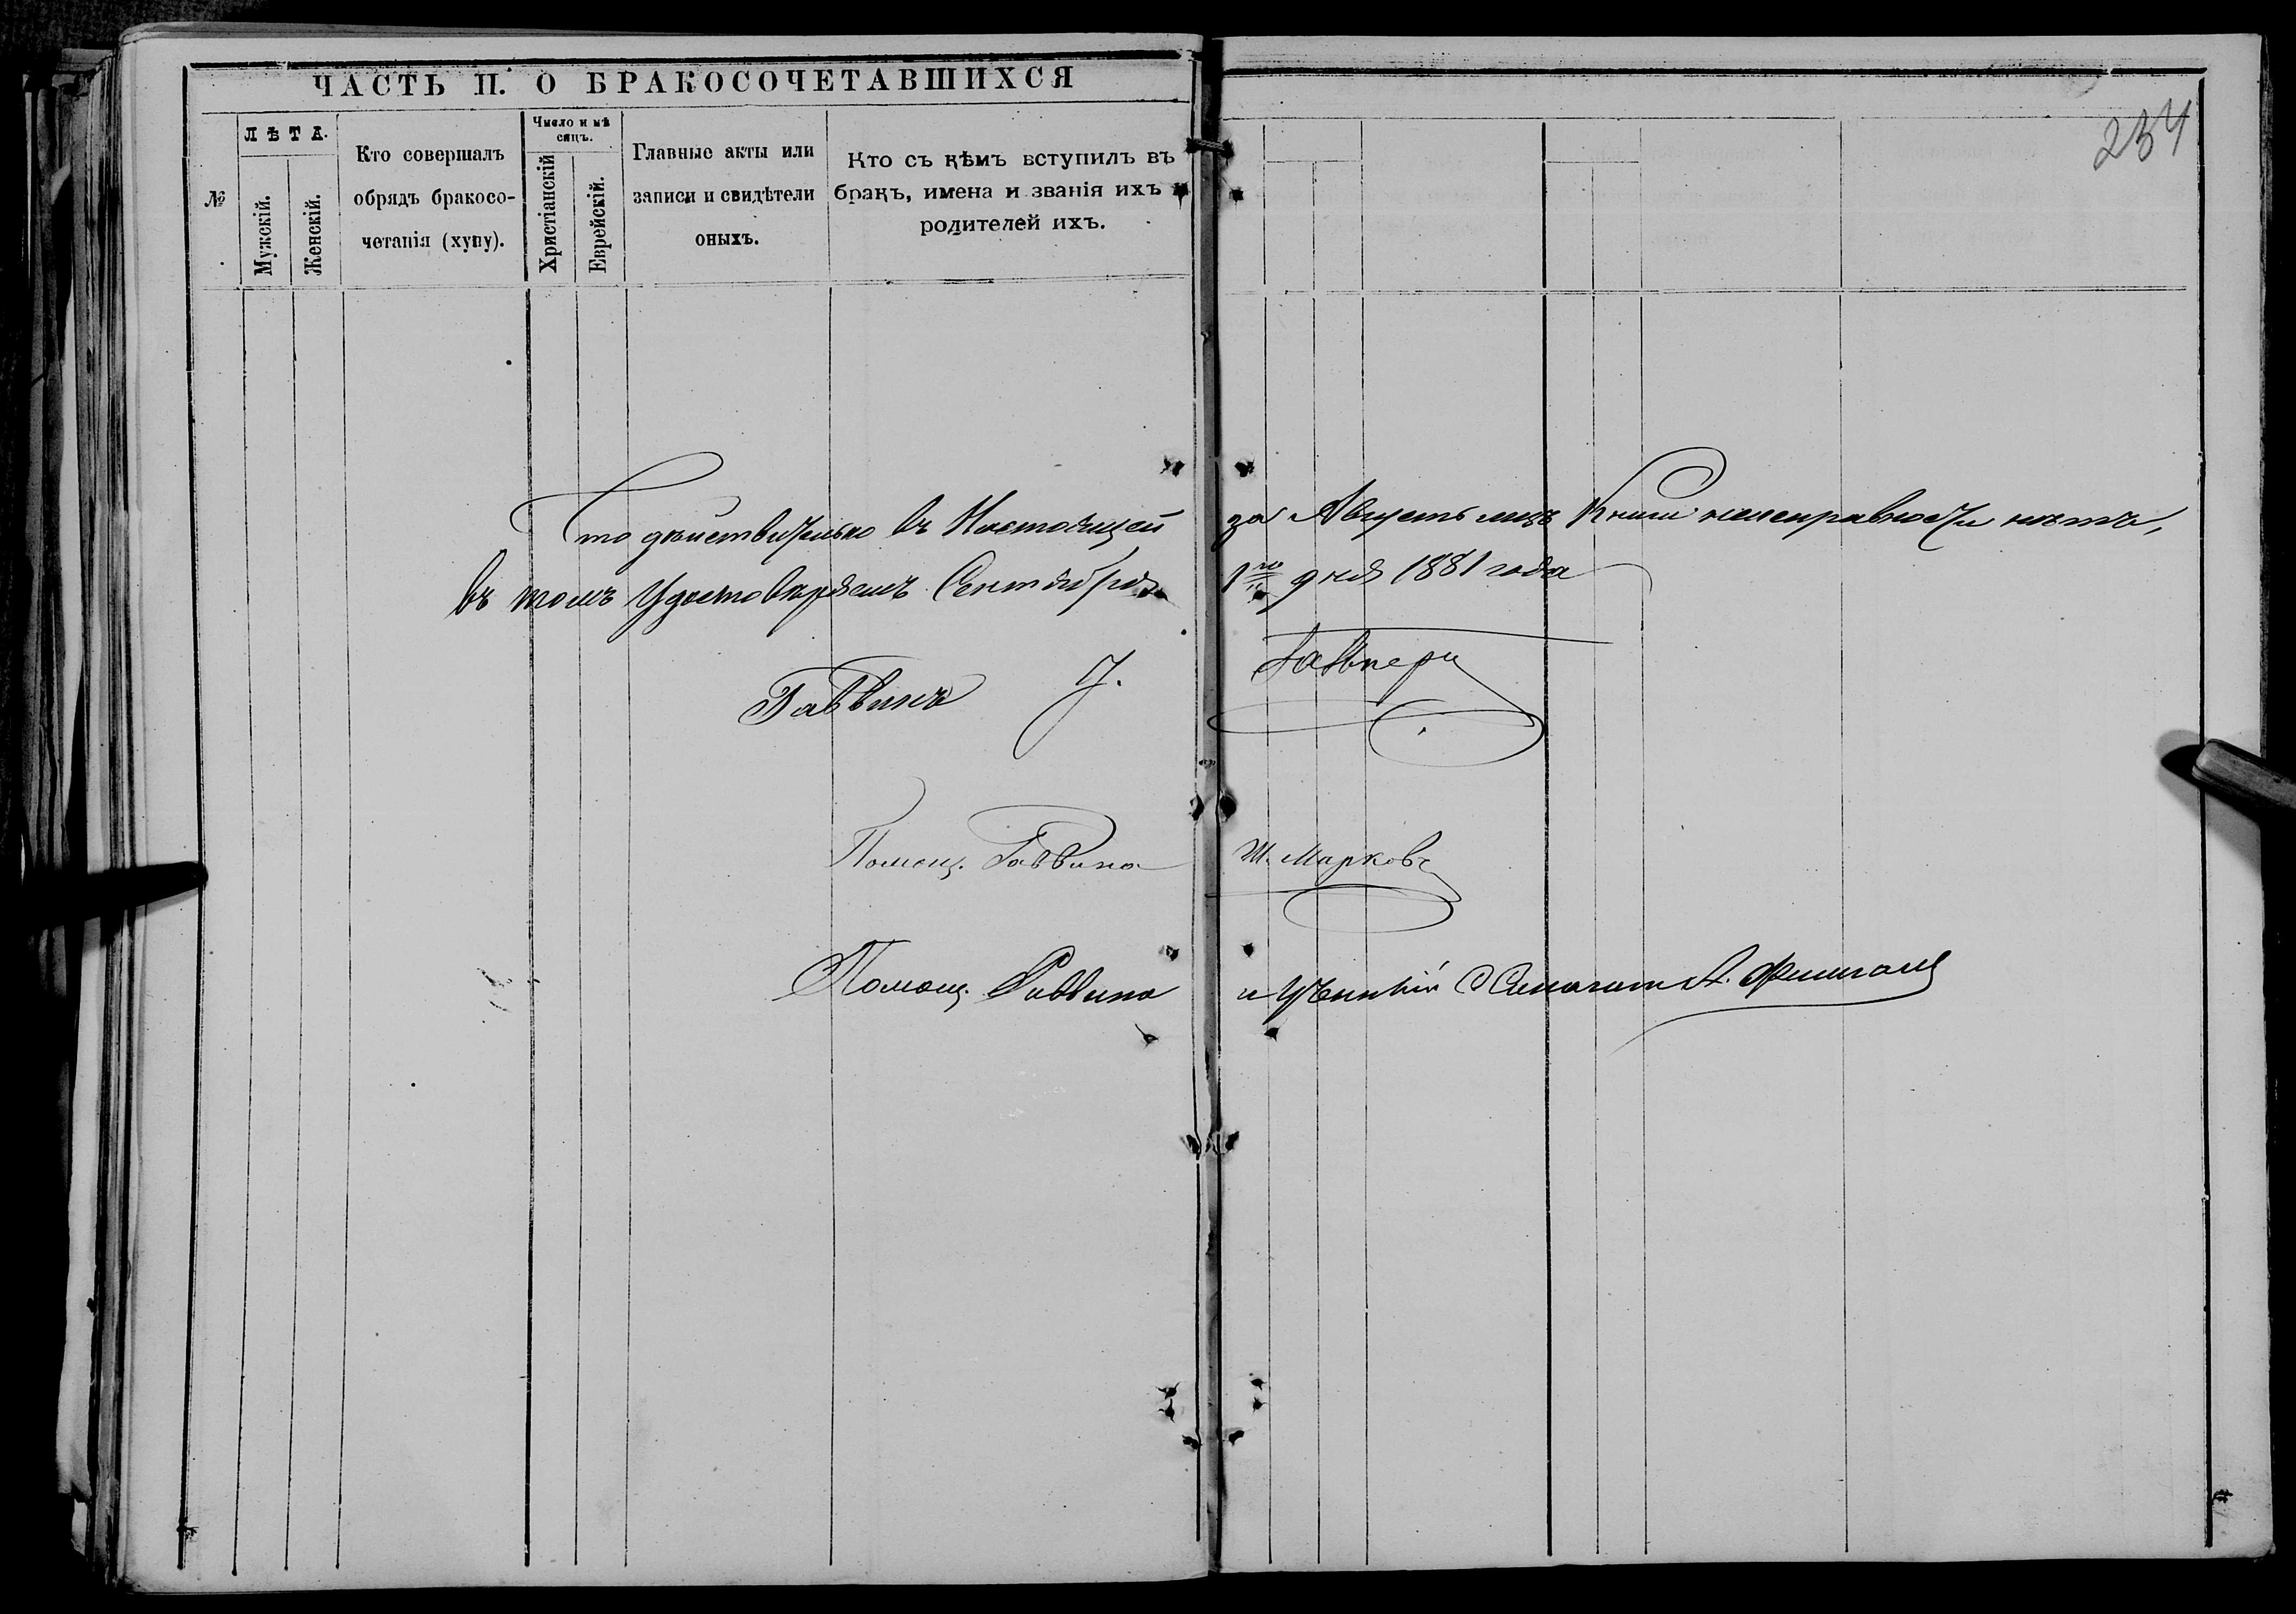 ЧАСТЬ II. О БРАКОСОЧЕТАВШИХСЯ
234
№
ЛѢТА.
Мужскій.
Женскій.
Кто совершалъ
обрядъ бракосо-
четанія (хупу).
Число и мѣ
сяцъ.
Христіанскій
Еврейскій.
Главные акты или
записи и свидѣтели
оныхъ.
Кто съ кѣмъ вступилъ въ
бракъ, имена и званія ихъ и
родителей ихъ.
Что дѣйствительно въ Настоящей за Августъ мцъ Книги неисправности нѣтъ,
въ томъ Удостовѣряемъ Сентября 1го дня 1881 года
Раввинъ
Помощ. Раввина Ш. Марковъ
Помощ. Раввина и